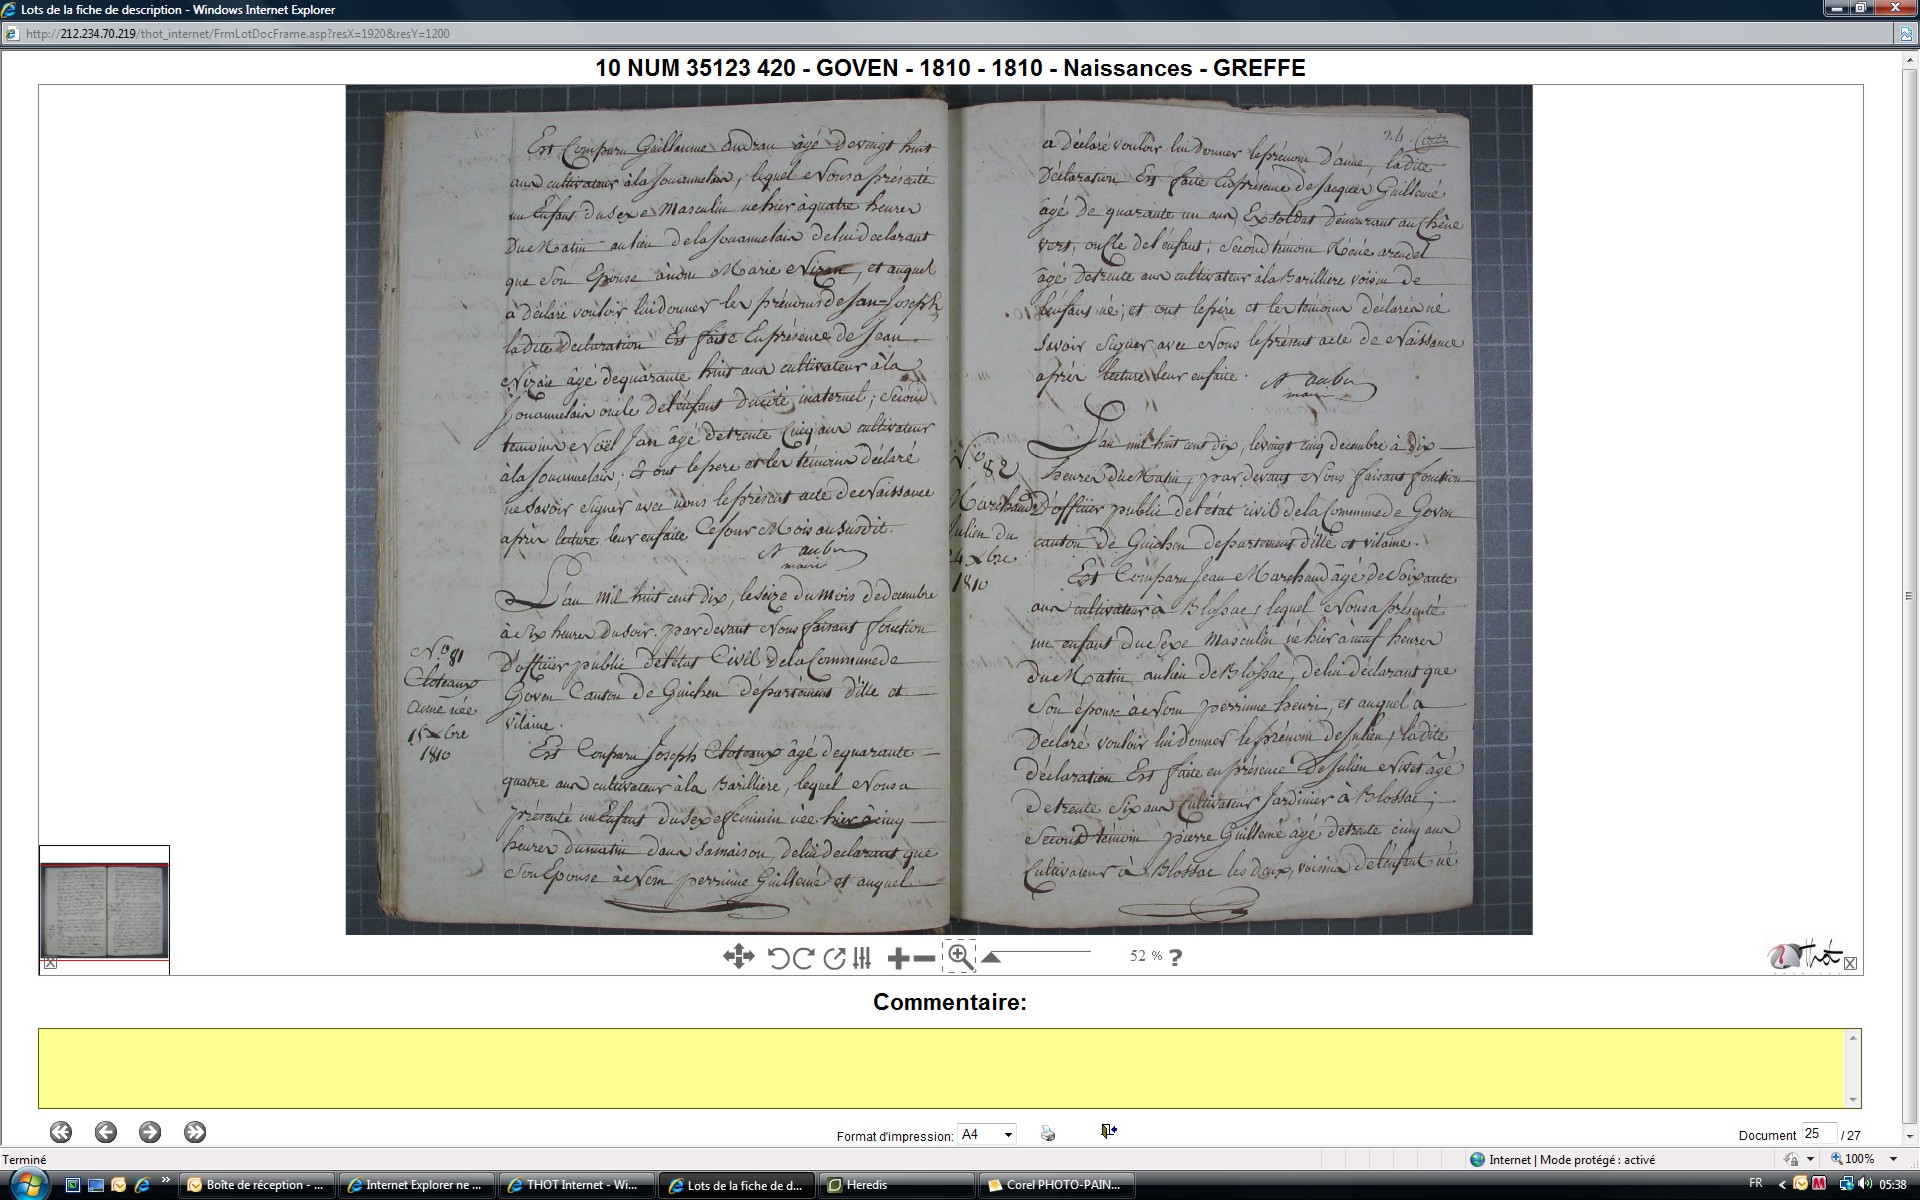 Lots de la fiche de description - Windows Internet Explorer
http://212.234.70.219/thot_internet/FrmLotDocFrame.asp?resX=1920&resY=1200
10 NUM 35123 420 - GOVEN - 1810 - 1810 - Naissances - GREFFE
Est Comparu Guillaume andrau âgé de vingt huit
ans cultivateur à la Jouannelais, lequel Nous a présenté
un Enfant du Sexe Masculin né hier à quatre heures
Du Matin au lieu de la Jouannelais de lui declarant
que Son Epouse à nom Marie Nizan, et auquel
a déclaré vouloir lui donner les prénoms de Jan-Joseph
ladite Declaration Est faite En présence de Jean
Nizan âgé de quarante huit ans cultivateur à la
Jouannelais oncle de l'énfant du côté maternel; Second
temoin Noël Jan âgé de trente Cinq ans cultivateur
à la Jouannelais; Et ont le pere et les temoins déclaré
ne Savoir Signer avec nous le présent acte de Naissance
après lecture leur en faite Ce Jour Mois an Susdit.
N aubin
maire
L'an mil huit cent dix, le seize du mois de decembre
à Six heures du Soir. par devant Nous faisant fonction
D'officier public de l'état Civil de la Commune de
Goven Canton de Guichen département d'ille et
vilaine.
N.º 81
Cloteaux
anne née
15 Xbre
1810
Est Comparu Joseph Cloteaux âgé de quarante
quatre ans cultivateur à la Barilliere, lequel Nous a
présenté un Enfant du Sexe feminin née hier à cinq
heures du matin dans Sa maison, de lui declarant que
Son Epouse à Nom perrinne Guillemé et auquel
24
a Déclaré vouloir lui donner le prénom d'anne, ladite
Déclaration Est faite En présence de Jacques Guillemé
âgé De quarante un ans, Ex soldat Demeurant au Chêne
vert, oncle de l'énfant; Second témoin Réné arendel
âgé De trente ans cultivateur à la Barilliere voisin de
l'énfant né; et ont le pére et les temoins déclarés né
Savoir Signer avec Nous le présent acte de Naissance
après lecture leur en faite.
N aubin
maire
L'an mil huit cent dix, le vingt cinq decembre à dix
heures du Matin, par devant Nous faisant fonction
D'officier public de l'état civil de la Commune de Goven
canton de Guichen departement d'ille et vilaine.
N.º 82
Marchand
Julien du
24 Xbre
1810
Est Comparu Jean Marchand âgé de Soixante
ans cultivateur à Blossac, lequel Nous a présenté
un enfant du Sexe Masculin né hier à neuf heures
du Matin au lieu de Blossac, de lui déclarant que
Son épouse à Nom perrinne henri, et auquel a
Déclaré vouloir lui donner le prénom de Julien, ladite
déclaration Est faite en présence De Julien âgé
de trente Six ans Cultivateur Jardinier à Blossac;
Second témoin pierre Guillemé âgé de trente cinq ans
Cultivateur à Blossac les deux, voisins de l'énfant né
52 % ?
Thot
Commentaire:
Format d'impression: A4
Document 25 / 27
Terminé
Internet | Mode protégé : activé
100%
Boîte de réception - ...
Internet Explorer ne ...
THOT Internet - Wi...
Lots de la fiche de d...
Heredis
Corel PHOTO-PAIN...
FR
05:38